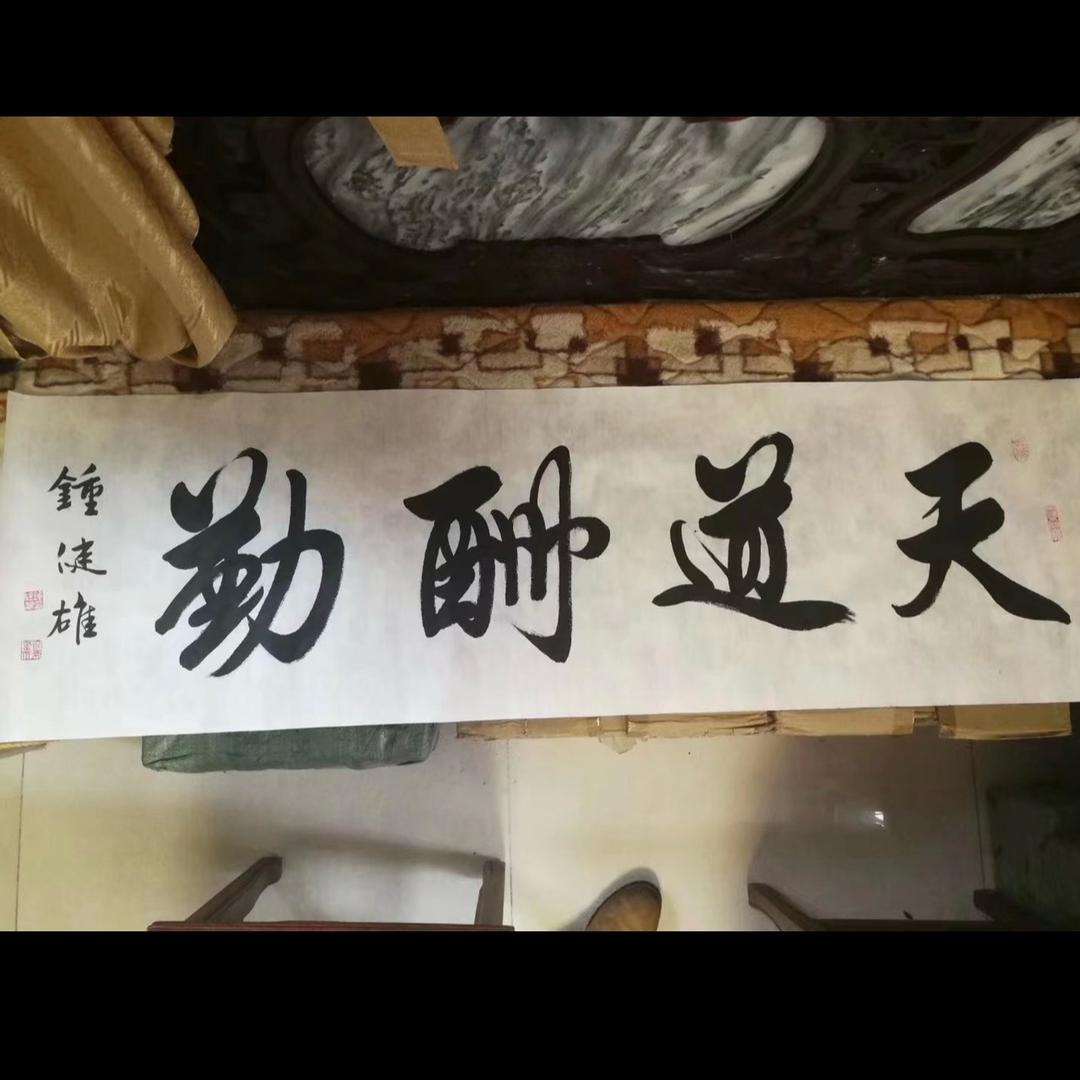 天道酬勤
鍾健雄